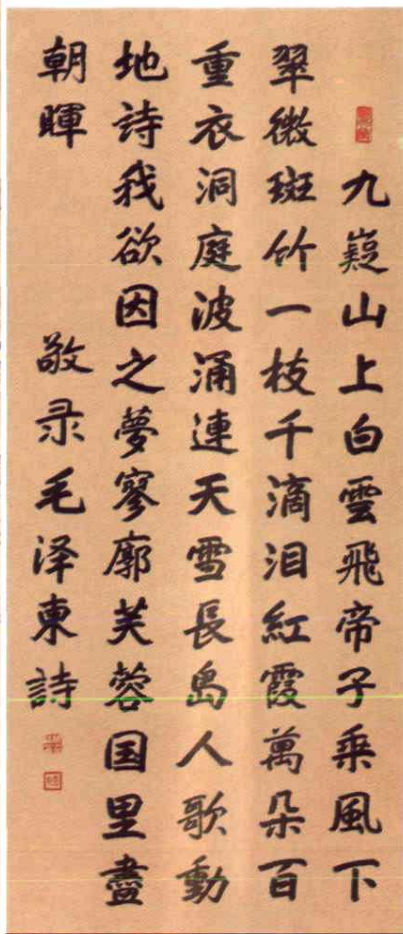 九嶷山上白雲飛帝子乘風下
翠微斑竹一枝千滴泪紅霞萬朵百
重衣洞庭波涌連天雪長島人歌動
地詩我欲因之夢寥廓芙蓉国里盡
朝暉
敬录毛泽東詩